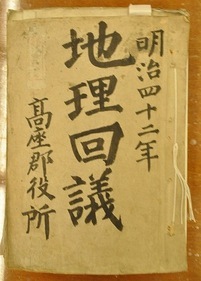 明治四十二年
地理回議
高座郡役所